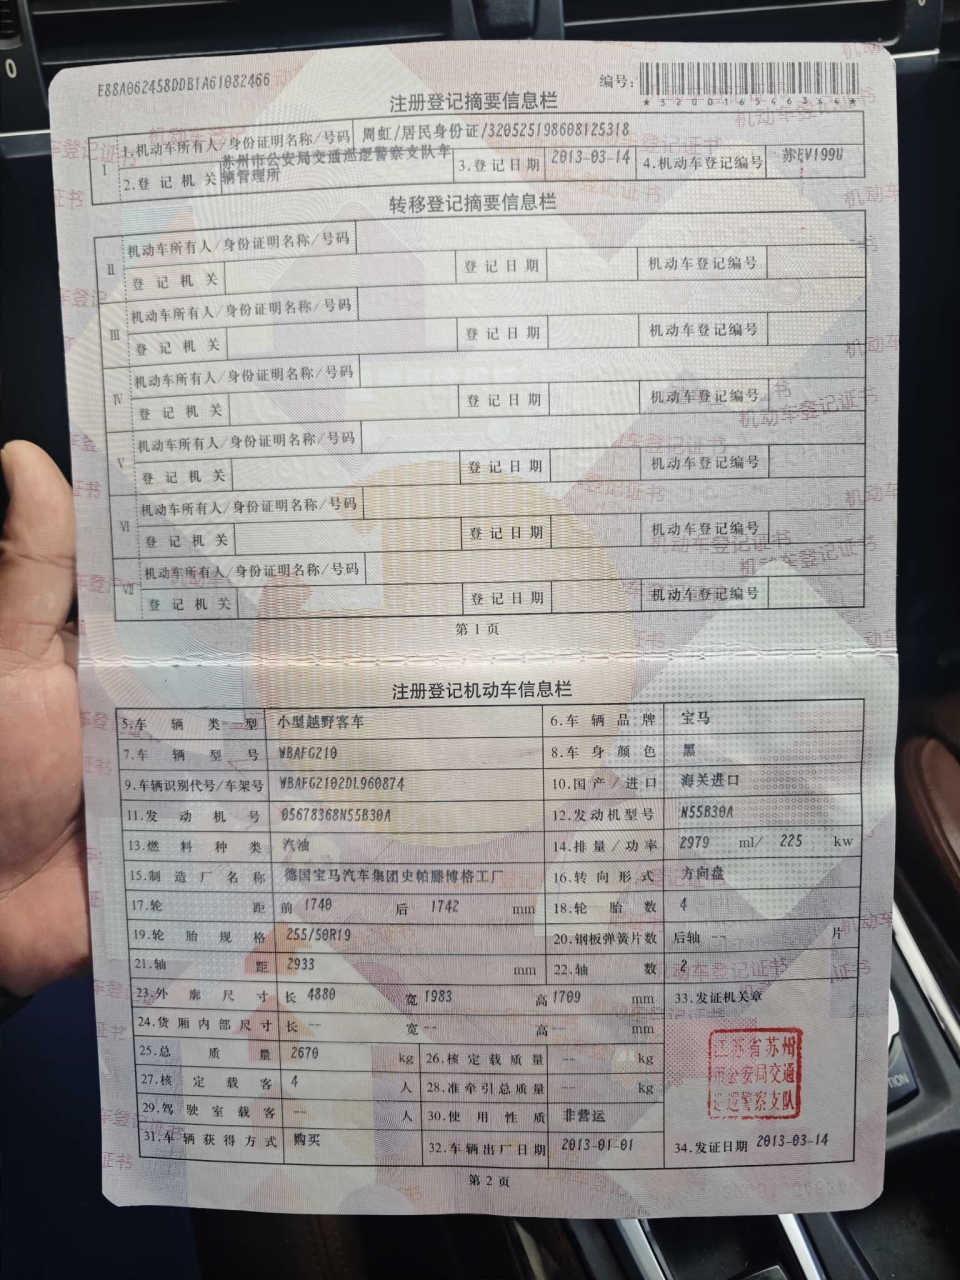 E88A062458DDB1A61082466
编号:
*320016546344*
注册登记摘要信息栏
I 1.机动车所有人/身份证明名称/号码 周虹/居民身份证/320525198608125318
2.登记机关 苏州市公安局交通巡逻警察支队车辆管理所 3.登记日期 2013-03-14 4.机动车登记编号 苏EV199U
转移登记摘要信息栏
II 机动车所有人/身份证明名称/号码
登记机关 登记日期 机动车登记编号
III 机动车所有人/身份证明名称/号码
登记机关 登记日期 机动车登记编号
IV 机动车所有人/身份证明名称/号码
登记机关 登记日期 机动车登记编号
V 机动车所有人/身份证明名称/号码
登记机关 登记日期 机动车登记编号
VI 机动车所有人/身份证明名称/号码
登记机关 登记日期 机动车登记编号
VII 机动车所有人/身份证明名称/号码
登记机关 登记日期 机动车登记编号
第1页
注册登记机动车信息栏
5.车辆类型 小型越野客车 6.车辆品牌 宝马
7.车辆型号 WBAFG210 8.车身颜色 黑
9.车辆识别代号/车架号 WBAFG2102DL960874 10.国产/进口 海关进口
11.发动机号 05678368N55B30A 12.发动机型号 N55B30A
13.燃料种类 汽油 14.排量/功率 2979 ml/ 225 kw
15.制造厂名称 德国宝马汽车集团史帕滕博格工厂 16.转向形式 方向盘
17.轮距 前 1740 后 1742 mm 18.轮胎数 4
19.轮胎规格 255/50R19 20.钢板弹簧片数 后轴 -- 片
21.轴距 2933 mm 22.轴数 2
23.外廓尺寸 长 4880 宽 1983 高 1709 mm 33.发证机关章
24.货厢内部尺寸 长 -- 宽 -- 高 -- mm
25.总质量 2670 kg 26.核定载质量 -- kg
27.核定载客 4 人 28.准牵引总质量 -- kg
29.驾驶室载客 -- 人 30.使用性质 非营运
31.车辆获得方式 购买 32.车辆出厂日期 2013-01-01 34.发证日期 2013-03-14
江苏省苏州
市公安局交通
巡逻警察支队
第2页